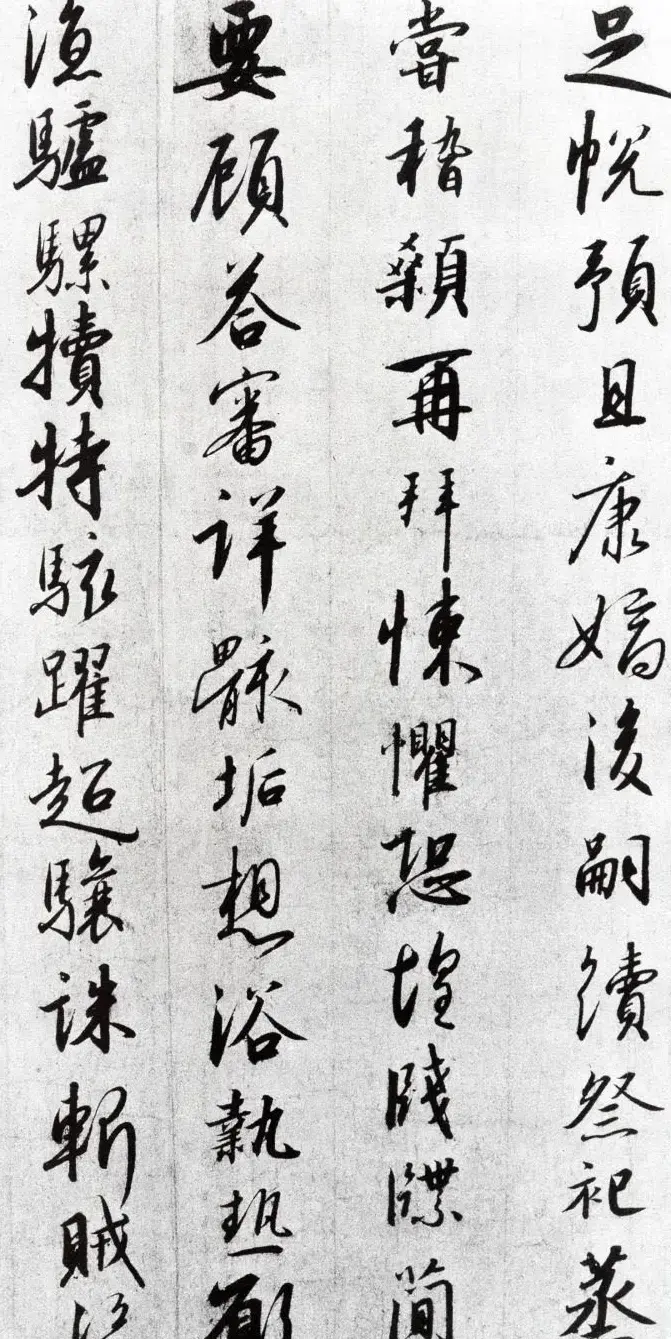 足悅預且康嫡後嗣續祭祀蒸
嘗稽顙再拜悚懼恐惶牋牒簡
要顧答審詳骸垢想浴執熱願
涼驢騾犢特駭躍超驤誅斬賊